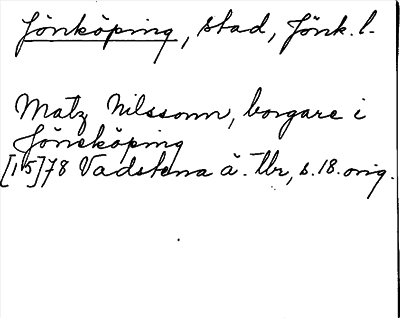 Jönköping, stad, Jönk. l.
Matz Nilssonn, borgare i
Jöneköping
[15]78 Vadstena ä. tbr, s. 18. orig.